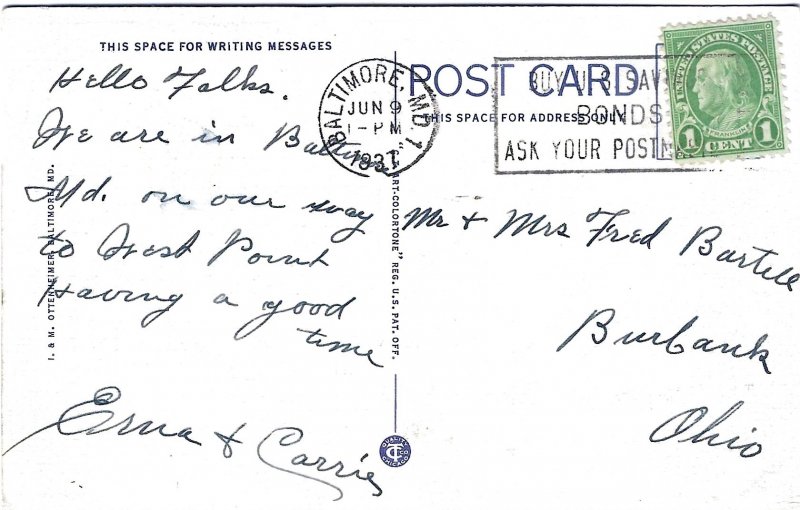 THIS SPACE FOR WRITING MESSAGES
Hello Folks.
We are in Baltimore
Md. on our way
to West Point
Having a good
time
Erna & Carrie
I. & M. OTTENHEIMER, BALTIMORE, MD.
ART-COLORTONE" REG. U.S. PAT. OFF.
QUALITY
CTCO
CHICAGO
BALTIMORE, MD. 1
JUN 9
1-PM
1937
POST CARD
THIS SPACE FOR ADDRESS ONLY
BUY U.S. SAV
BONDS
ASK YOUR POSTM
UNITED STATES POSTAGE
FRANKLIN
1 CENT 1
Mr & Mrs Fred Bartell
Burbank
Ohio